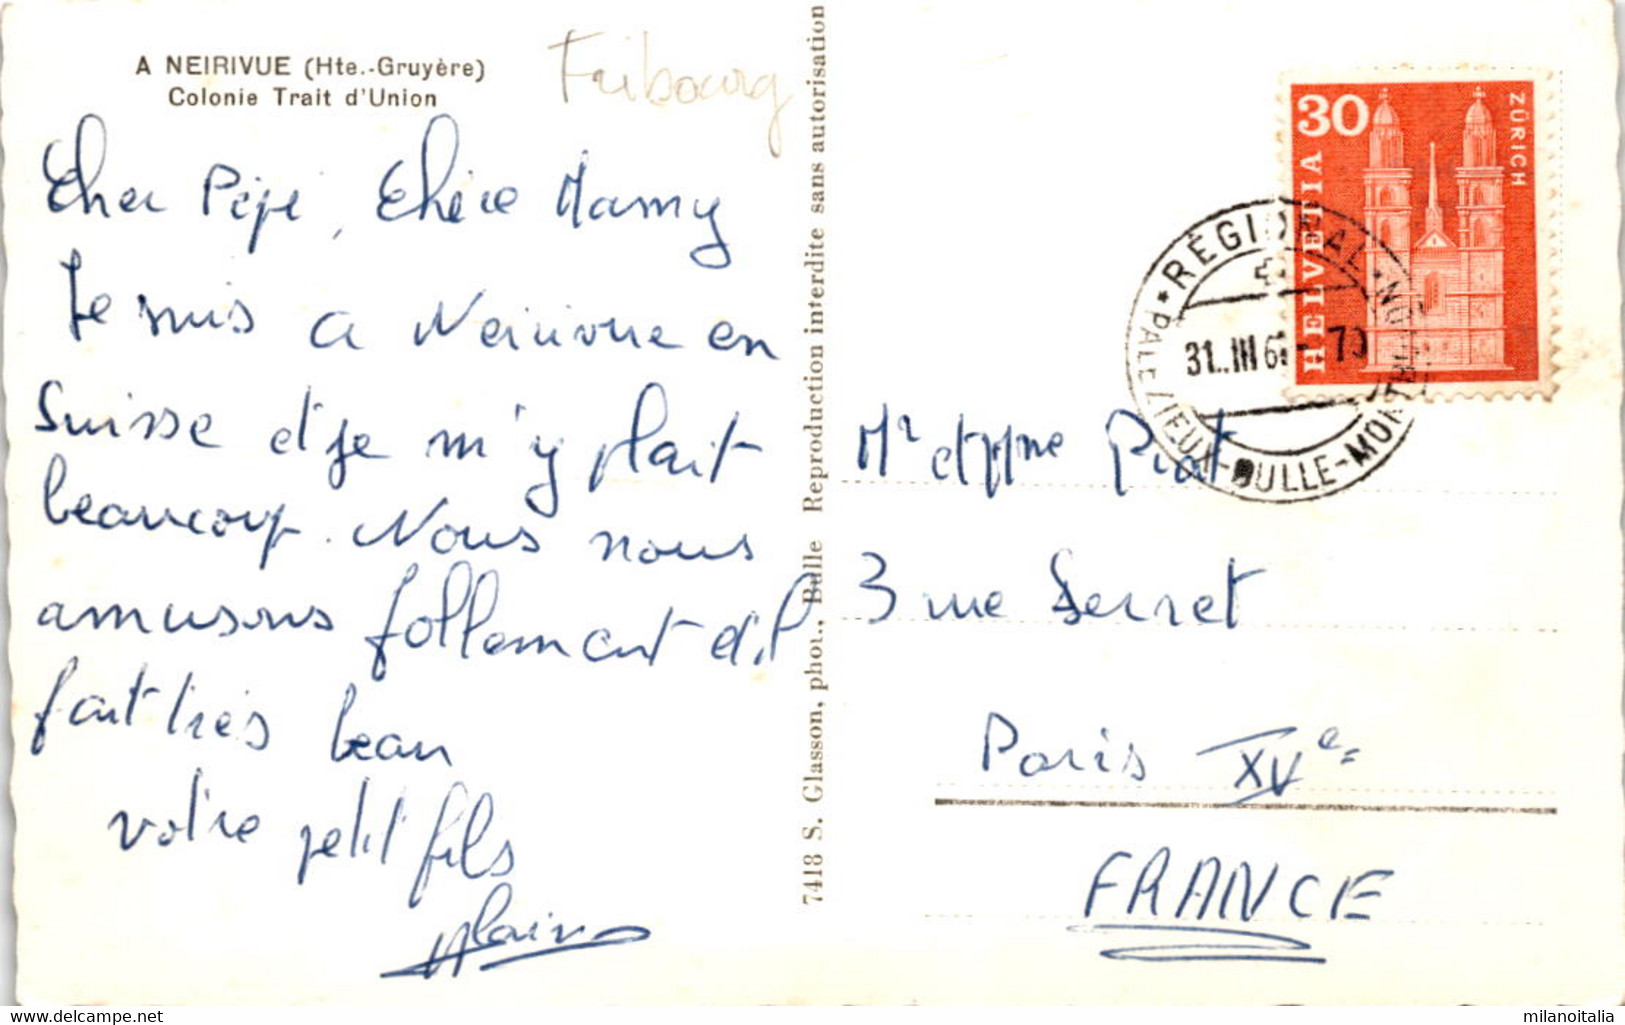 A NEIRIVUE (Hte.-Gruyère)
Colonie Trait d'Union
Fribourg
Cher Pépé, Chère Mamy
Je suis a Neirivue en
Suisse et je m'y plait
beaucoup. Nous nous
amusons follement et il
fait très beau
votre petit fils
Alain
7418 S. Glasson, phot., Bulle Reproduction interdite sans autorisation
30
HELVETIA
ZÜRICH
RÉGIONAL
PALÉZIEUX-BULLE-MON
31.III 6
Mr et Mme Piat
3 rue Serret
Paris XVe
FRANCE
https://www.delcampe.net
milanoitalia